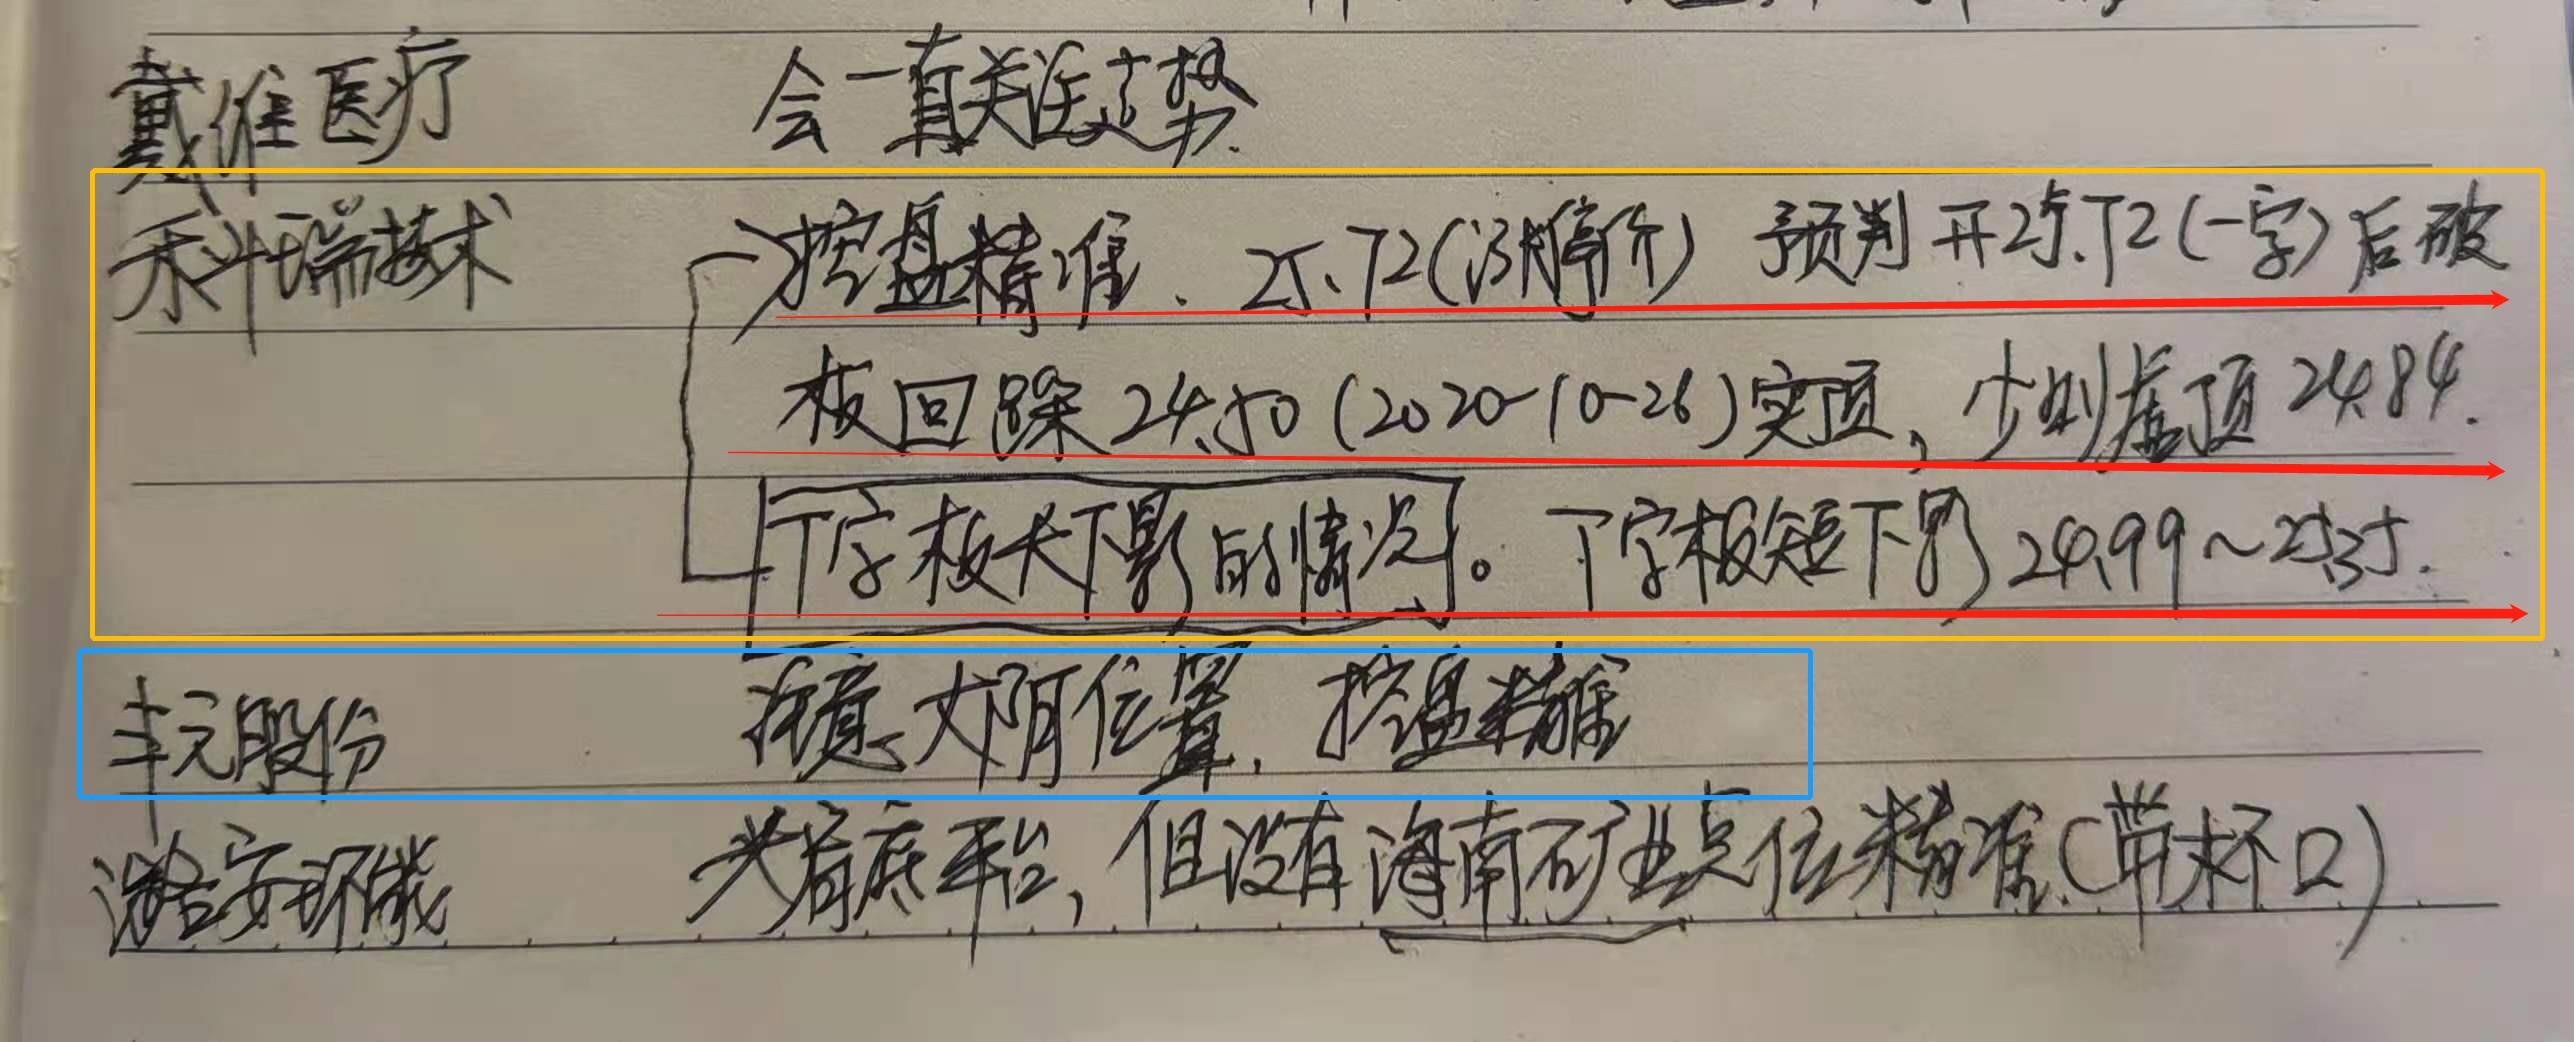 戴维医疗 会一直关注走势.
科瑞技术 控盘精准、25.72(涨停价) 预判开25.72(一字)后破
板回踩24.50(2020-10-26)实顶,少则虚顶24.84.
T字板长下影的情况。T字板短下影24.99~25.35.
丰元股份 注意大阴位置,控盘精准
潞安环能 类有底平台,但没有海南矿业点位精准(带杯口)